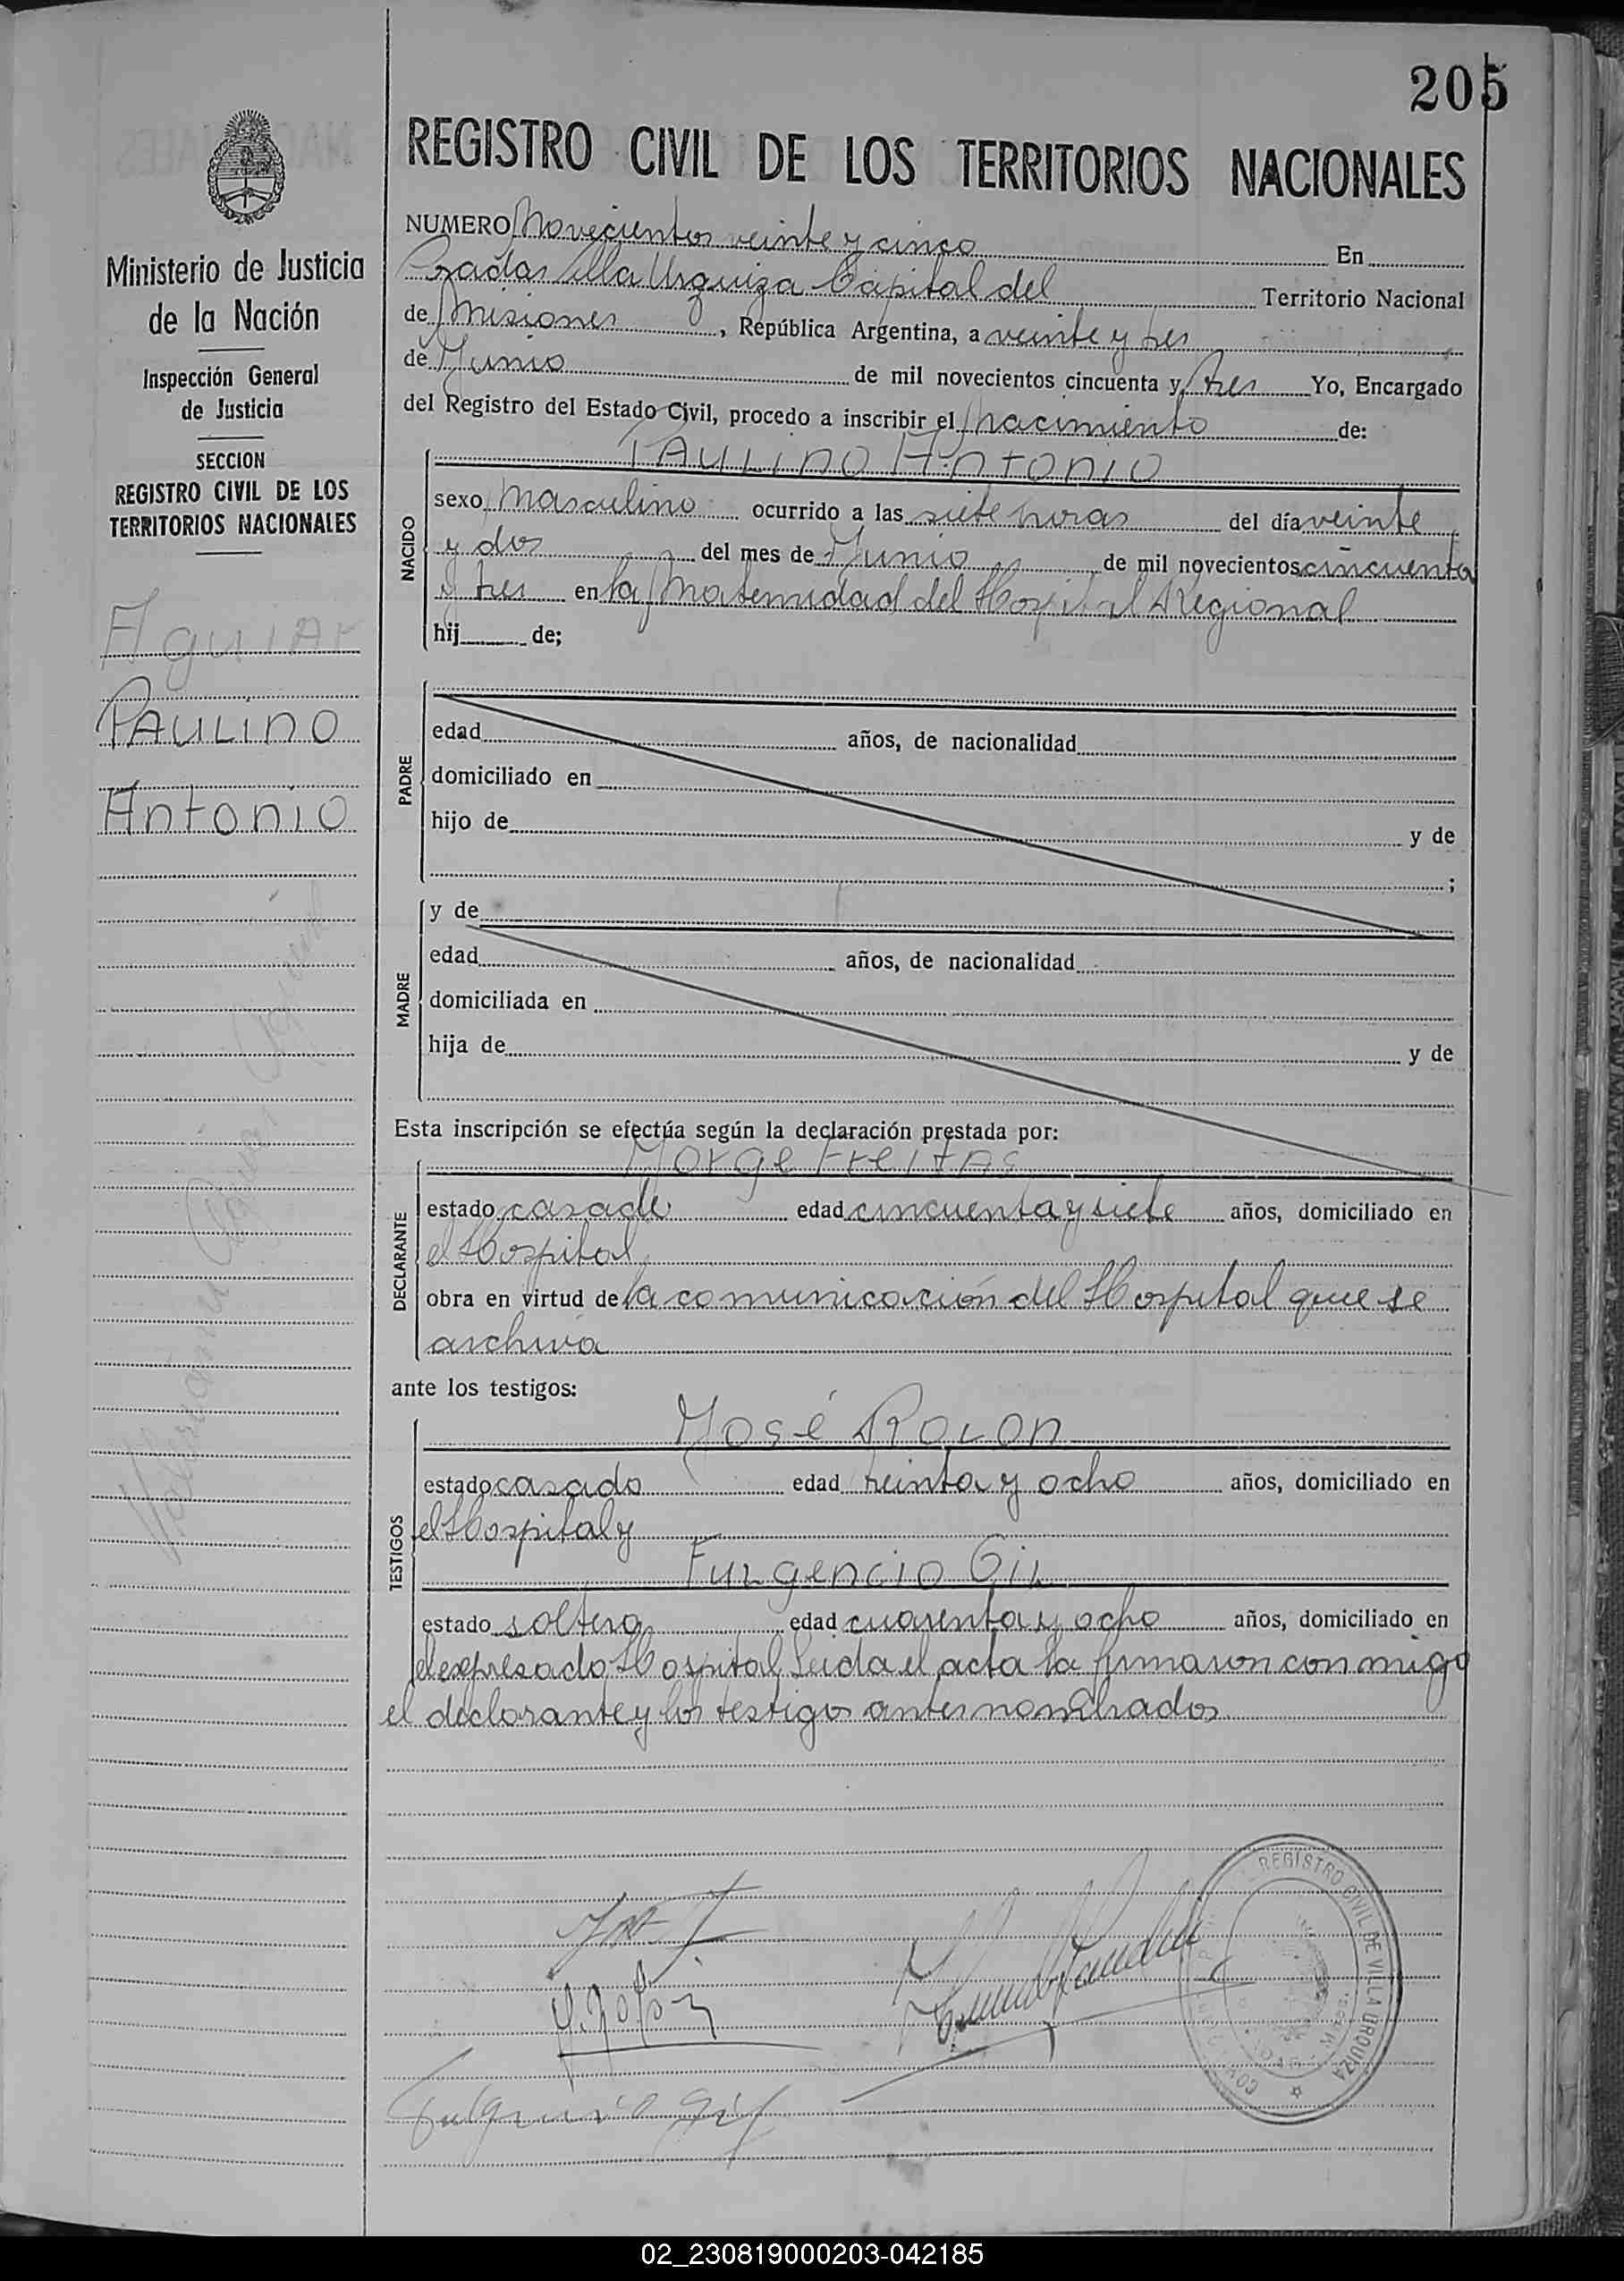 205
REGISTRO CIVIL DE LOS TERRITORIOS NACIONALES
Ministerio de Justicia
de la Nación
Inspección General
de Justicia
SECCION
REGISTRO CIVIL DE LOS
TERRITORIOS NACIONALES
Aguiar
PAULINO
Antonio
NUMERO Novecientos veinte y cinco En
Posadas Villa Urquiza Capital del Territorio Nacional
de Misiones, República Argentina, a veinte y tres
de Junio de mil novecientos cincuenta y tres Yo, Encargado
del Registro del Estado Civil, procedo a inscribir el nacimiento de:
NACIDO
PAULINO Antonio
sexo Masculino ocurrido a las siete horas del día veinte
y dos del mes de Junio de mil novecientos cincuenta
y tres en la Maternidad del Hospital Regional
hij de;
PADRE
edad años, de nacionalidad
domiciliado en
hijo de y de
;
MADRE
y de
edad años, de nacionalidad
domiciliada en
hija de y de
Esta inscripción se efectúa según la declaración prestada por:
DECLARANTE
Jorge Freitas
estado casado edad cincuenta y siete años, domiciliado en
el Hospital
obra en virtud de la comunicación del Hospital que se
archiva
ante los testigos:
TESTIGOS
José Rolon
estado casado edad treinta y ocho años, domiciliado en
el Hospital y
Fulgencio Gil
estado soltero edad cuarenta y ocho años, domiciliado en
el expresado Hospital Leida el acta la firmaron con migo
el declarante y los testigos antes nombrados
J. Rolón
Fulgencio Gil
REGISTRO CIVIL DE VILLA URQUIZA
02_230819000203-042185